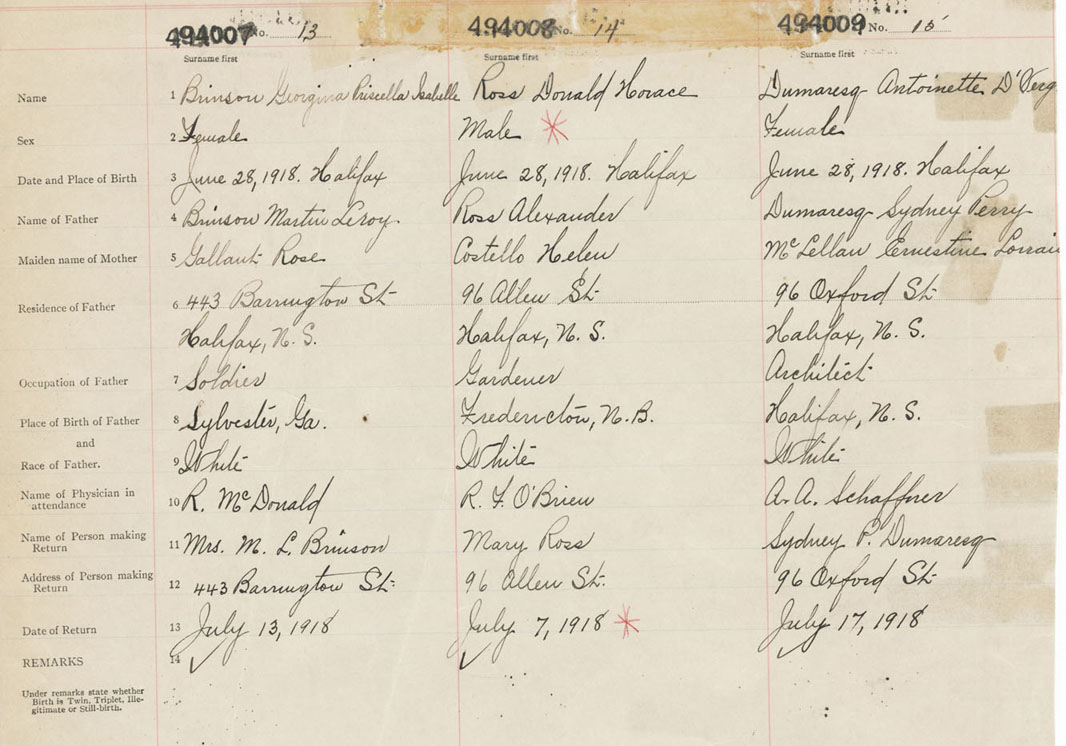 494007 No. 13 494008 No. 14 494009 No. 15
Surname first Surname first Surname first
Name 1 Brinson Georgina Priscella Isabelle Ross Donald Horace Dumaresq Antoinette D'Verg
Sex 2 Female Male Female
Date and Place of Birth 3 June 28, 1918. Halifax June 28, 1918. Halifax June 28, 1918. Halifax
Name of Father 4 Brinson Martin Leroy. Ross Alexander Dumaresq Sydney Perry
Maiden name of Mother 5 Gallant Rose Costello Helen McLellan Ernestine Lorrai
Residence of Father 6 443 Barrington St. 96 Allen St. 96 Oxford St.
Halifax, N.S. Halifax, N.S. Halifax, N.S.
Occupation of Father 7 Soldier Gardener Architect
Place of Birth of Father 8 Sylvester, Ga. Fredericton, N.B. Halifax, N.S.
and
Race of Father. 9 White White White
Name of Physician in attendance 10 R. McDonald R. F. O'Brien A. A. Schaffner
Name of Person making Return 11 Mrs. M. L. Brinson Mary Ross Sydney P. Dumaresq
Address of Person making Return 12 443 Barrington St. 96 Allen St. 96 Oxford St.
Date of Return 13 July 13, 1918 July 7, 1918 July 17, 1918
REMARKS 14
Under remarks state whether
Birth is Twin, Triplet, Ille-
gitimate or Still-birth.